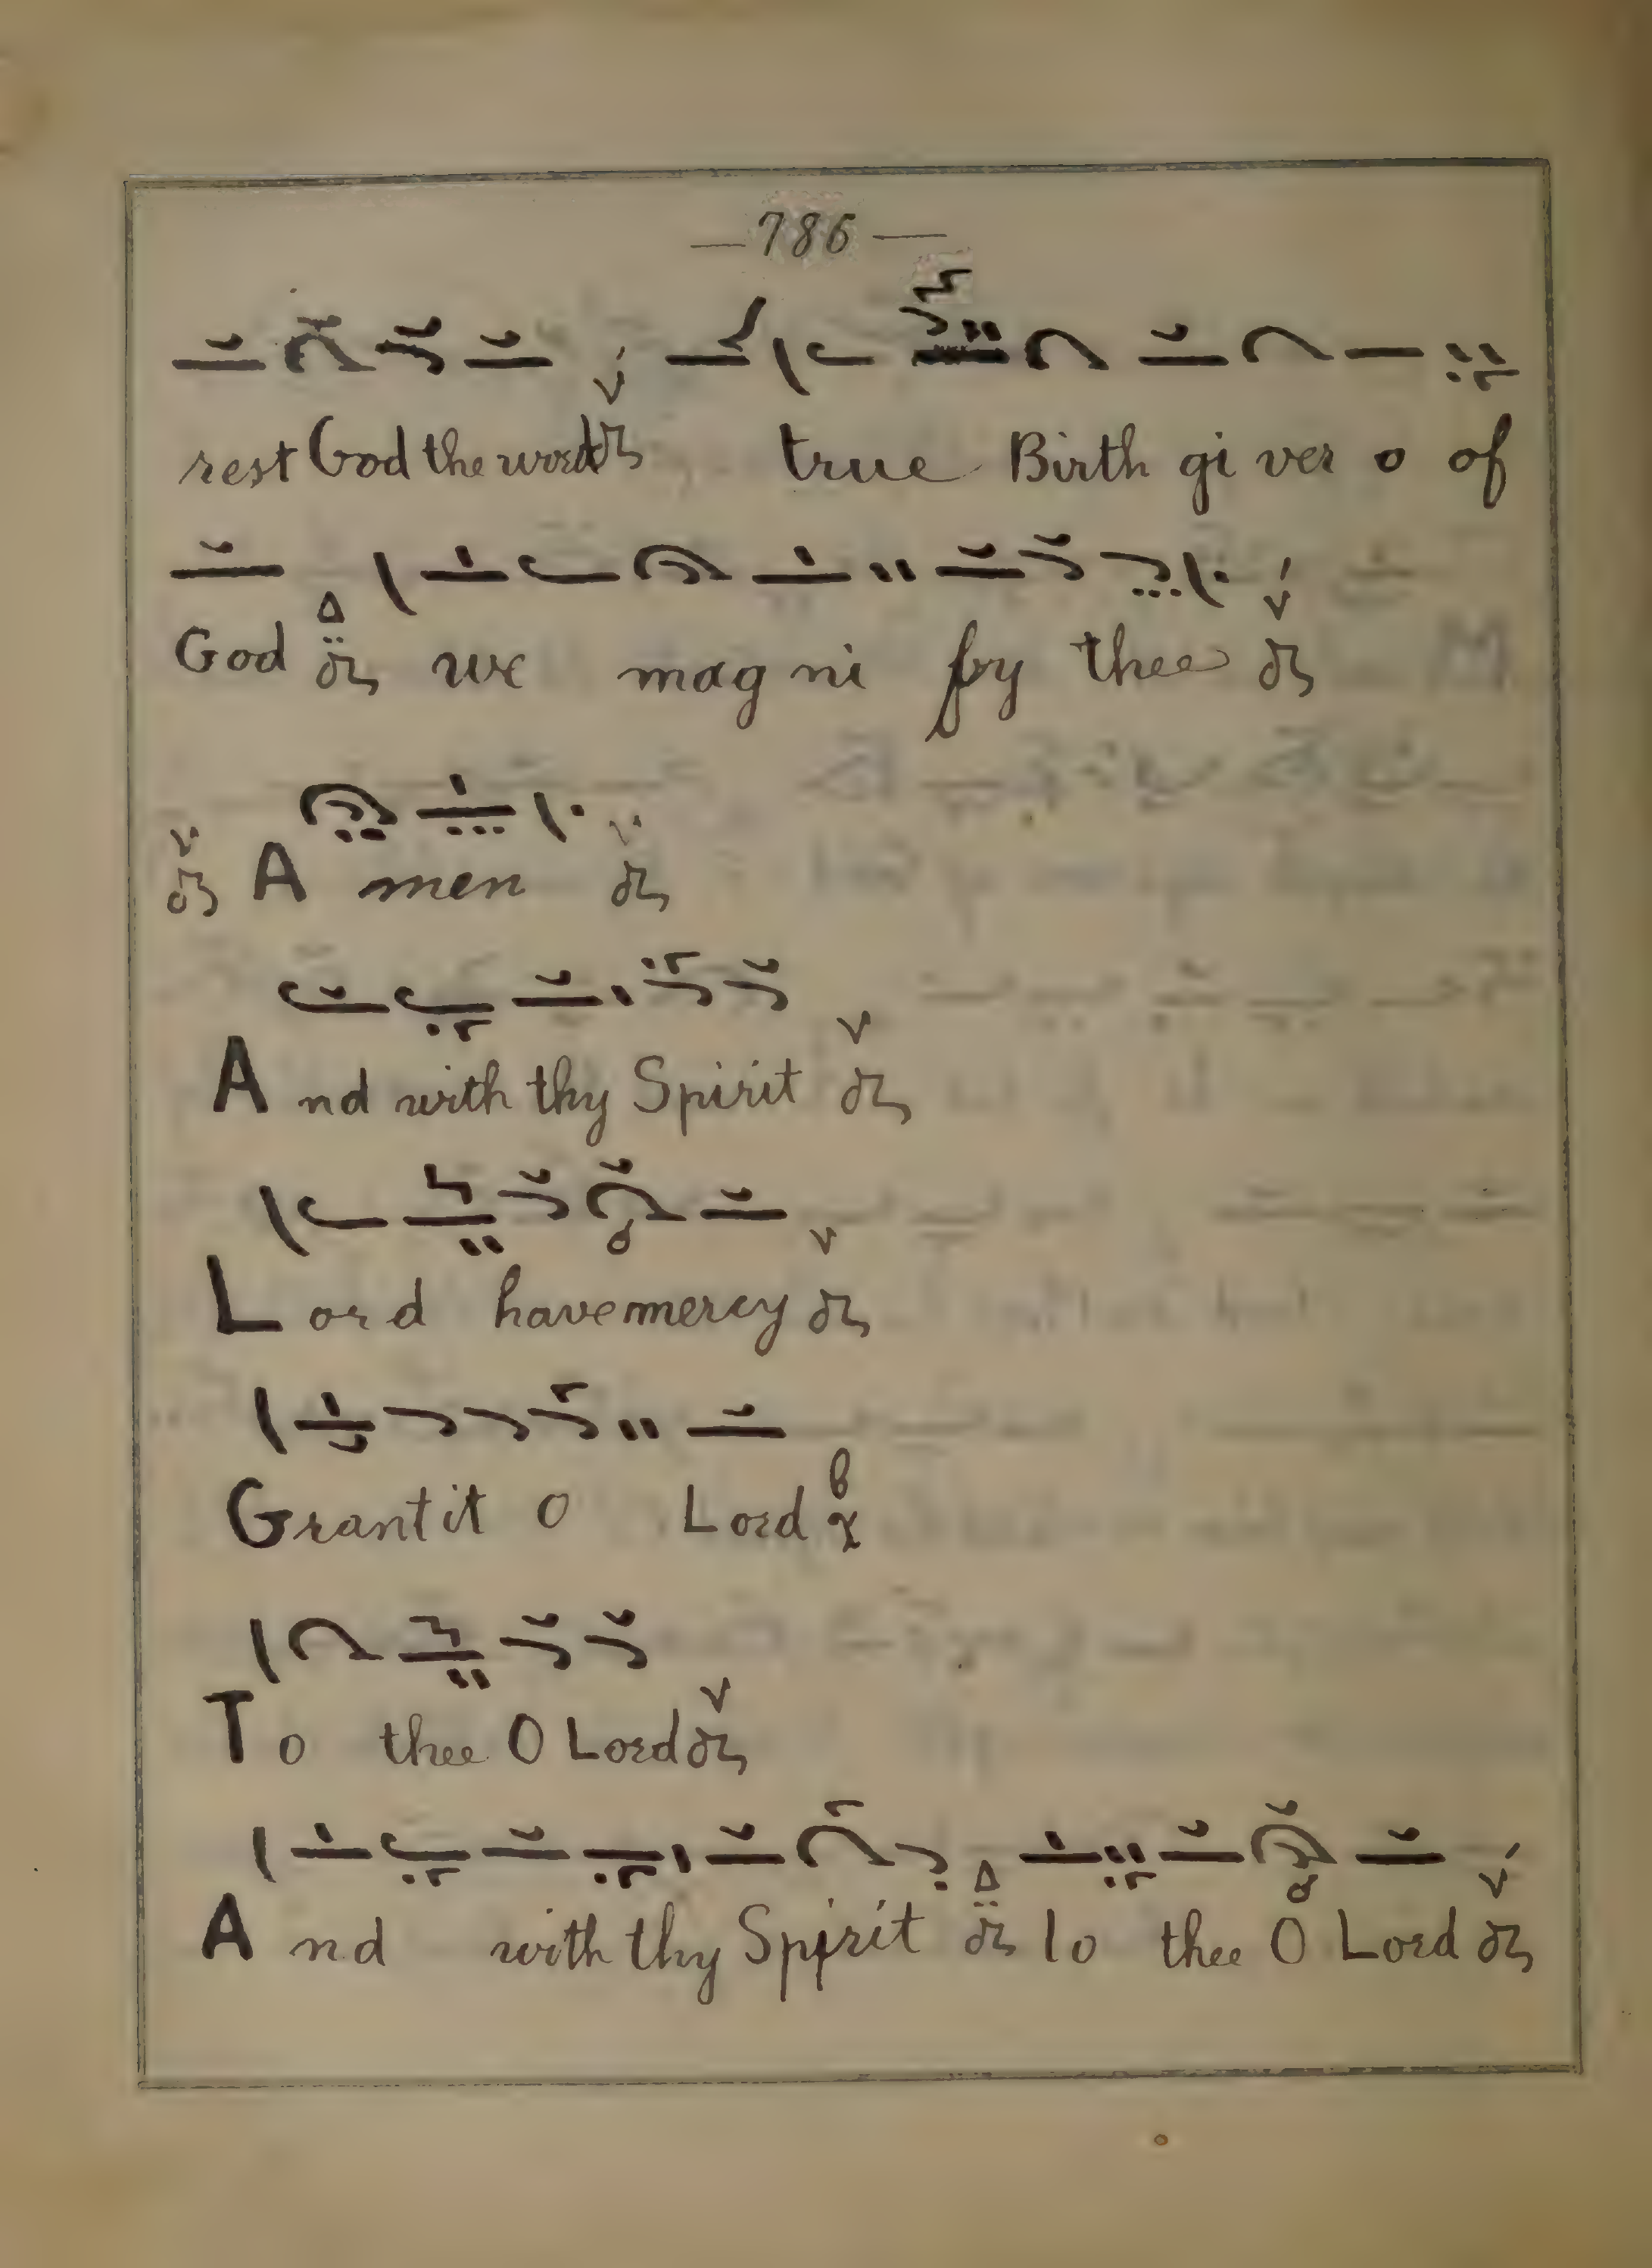 —786—
rest God the word true Birth gi ver o of
God we mag ni fy thee
A men
A nd with thy Spirit
L or d have mercy
Grant it o Lord
T o thee O Lord
A nd with thy Spirit To thee O Lord